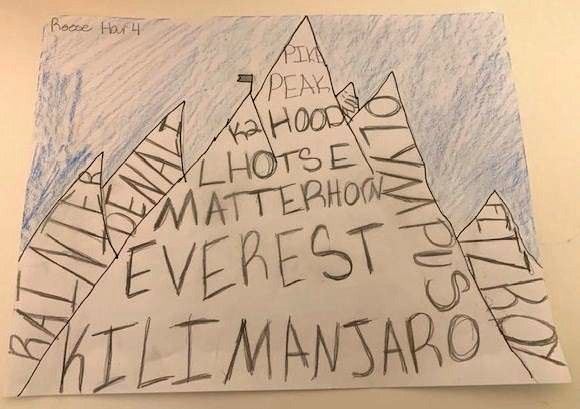 Reese Hour 4
PIKE
PEAK
K2 HOOD
LHOTSE
MATTERHORN
EVEREST
KILIMANJARO
RAINIER
DENALI
OLYMPUS
FITZROY